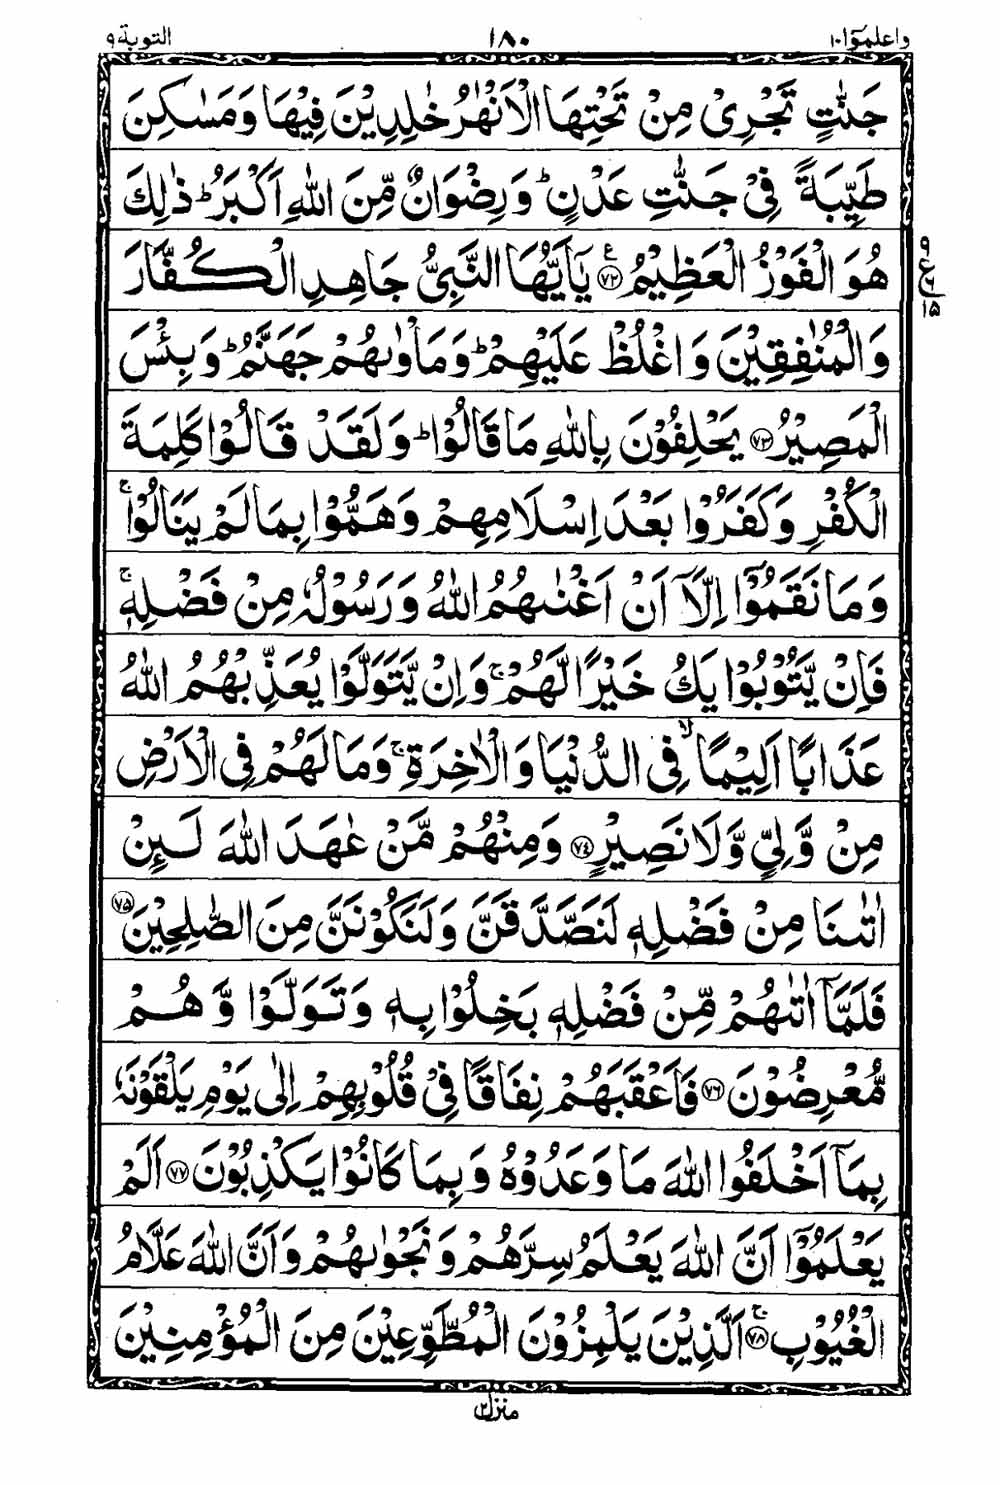 واعلموا ١٠ ١٨٠ التوبة ٩
جَنّٰتٍ تَجْرِیْ مِنْ تَحْتِهَا الْاَنْهٰرُ خٰلِدِیْنَ فِیْهَا وَمَسٰكِنَ
طَیِّبَةً فِیْ جَنّٰتِ عَدْنٍ ؕ وَرِضْوَانٌ مِّنَ اللّٰهِ اَكْبَرُ ؕ ذٰلِكَ
هُوَ الْفَوْزُ الْعَظِیْمُ ﴿۷۲﴾ یٰۤاَیُّهَا النَّبِیُّ جَاهِدِ الْكُفَّارَ
ع ٩ ٦ ١٥
وَالْمُنٰفِقِیْنَ وَاغْلُظْ عَلَیْهِمْ ؕ وَمَاْوٰىهُمْ جَهَنَّمُ ؕ وَبِئْسَ
الْمَصِیْرُ ﴿۷۳﴾ یَحْلِفُوْنَ بِاللّٰهِ مَا قَالُوْا ؕ وَلَقَدْ قَالُوْا كَلِمَةَ
الْكُفْرِ وَكَفَرُوْا بَعْدَ اِسْلَامِهِمْ وَهَمُّوْا بِمَا لَمْ یَنَالُوْا ۚ
وَمَا نَقَمُوْۤا اِلَّاۤ اَنْ اَغْنٰىهُمُ اللّٰهُ وَرَسُوْلُهٗ مِنْ فَضْلِهٖ ۚ
فَاِنْ یَّتُوْبُوْا یَكُ خَیْرًا لَّهُمْ ۚ وَاِنْ یَّتَوَلَّوْا یُعَذِّبْهُمُ اللّٰهُ
عَذَابًا اَلِیْمًا ۙ فِی الدُّنْیَا وَالْاٰخِرَةِ ۚ وَمَا لَهُمْ فِی الْاَرْضِ
مِنْ وَّلِیٍّ وَّلَا نَصِیْرٍ ﴿۷٤﴾ وَمِنْهُمْ مَّنْ عٰهَدَ اللّٰهَ لَئِنْ
اٰتٰىنَا مِنْ فَضْلِهٖ لَنَصَّدَّقَنَّ وَلَنَكُوْنَنَّ مِنَ الصّٰلِحِیْنَ ﴿۷۵﴾
فَلَمَّاۤ اٰتٰىهُمْ مِّنْ فَضْلِهٖ بَخِلُوْا بِهٖ وَتَوَلَّوْا وَّهُمْ
مُّعْرِضُوْنَ ﴿۷۶﴾ فَاَعْقَبَهُمْ نِفَاقًا فِیْ قُلُوْبِهِمْ اِلٰى یَوْمِ یَلْقَوْنَهٗ
بِمَاۤ اَخْلَفُوا اللّٰهَ مَا وَعَدُوْهُ وَبِمَا كَانُوْا یَكْذِبُوْنَ ﴿۷۷﴾ اَلَمْ
یَعْلَمُوْۤا اَنَّ اللّٰهَ یَعْلَمُ سِرَّهُمْ وَنَجْوٰىهُمْ وَاَنَّ اللّٰهَ عَلَّامُ
الْغُیُوْبِ ۚ ﴿۷۸﴾ اَلَّذِیْنَ یَلْمِزُوْنَ الْمُطَّوِّعِیْنَ مِنَ الْمُؤْمِنِیْنَ
منزل ٢